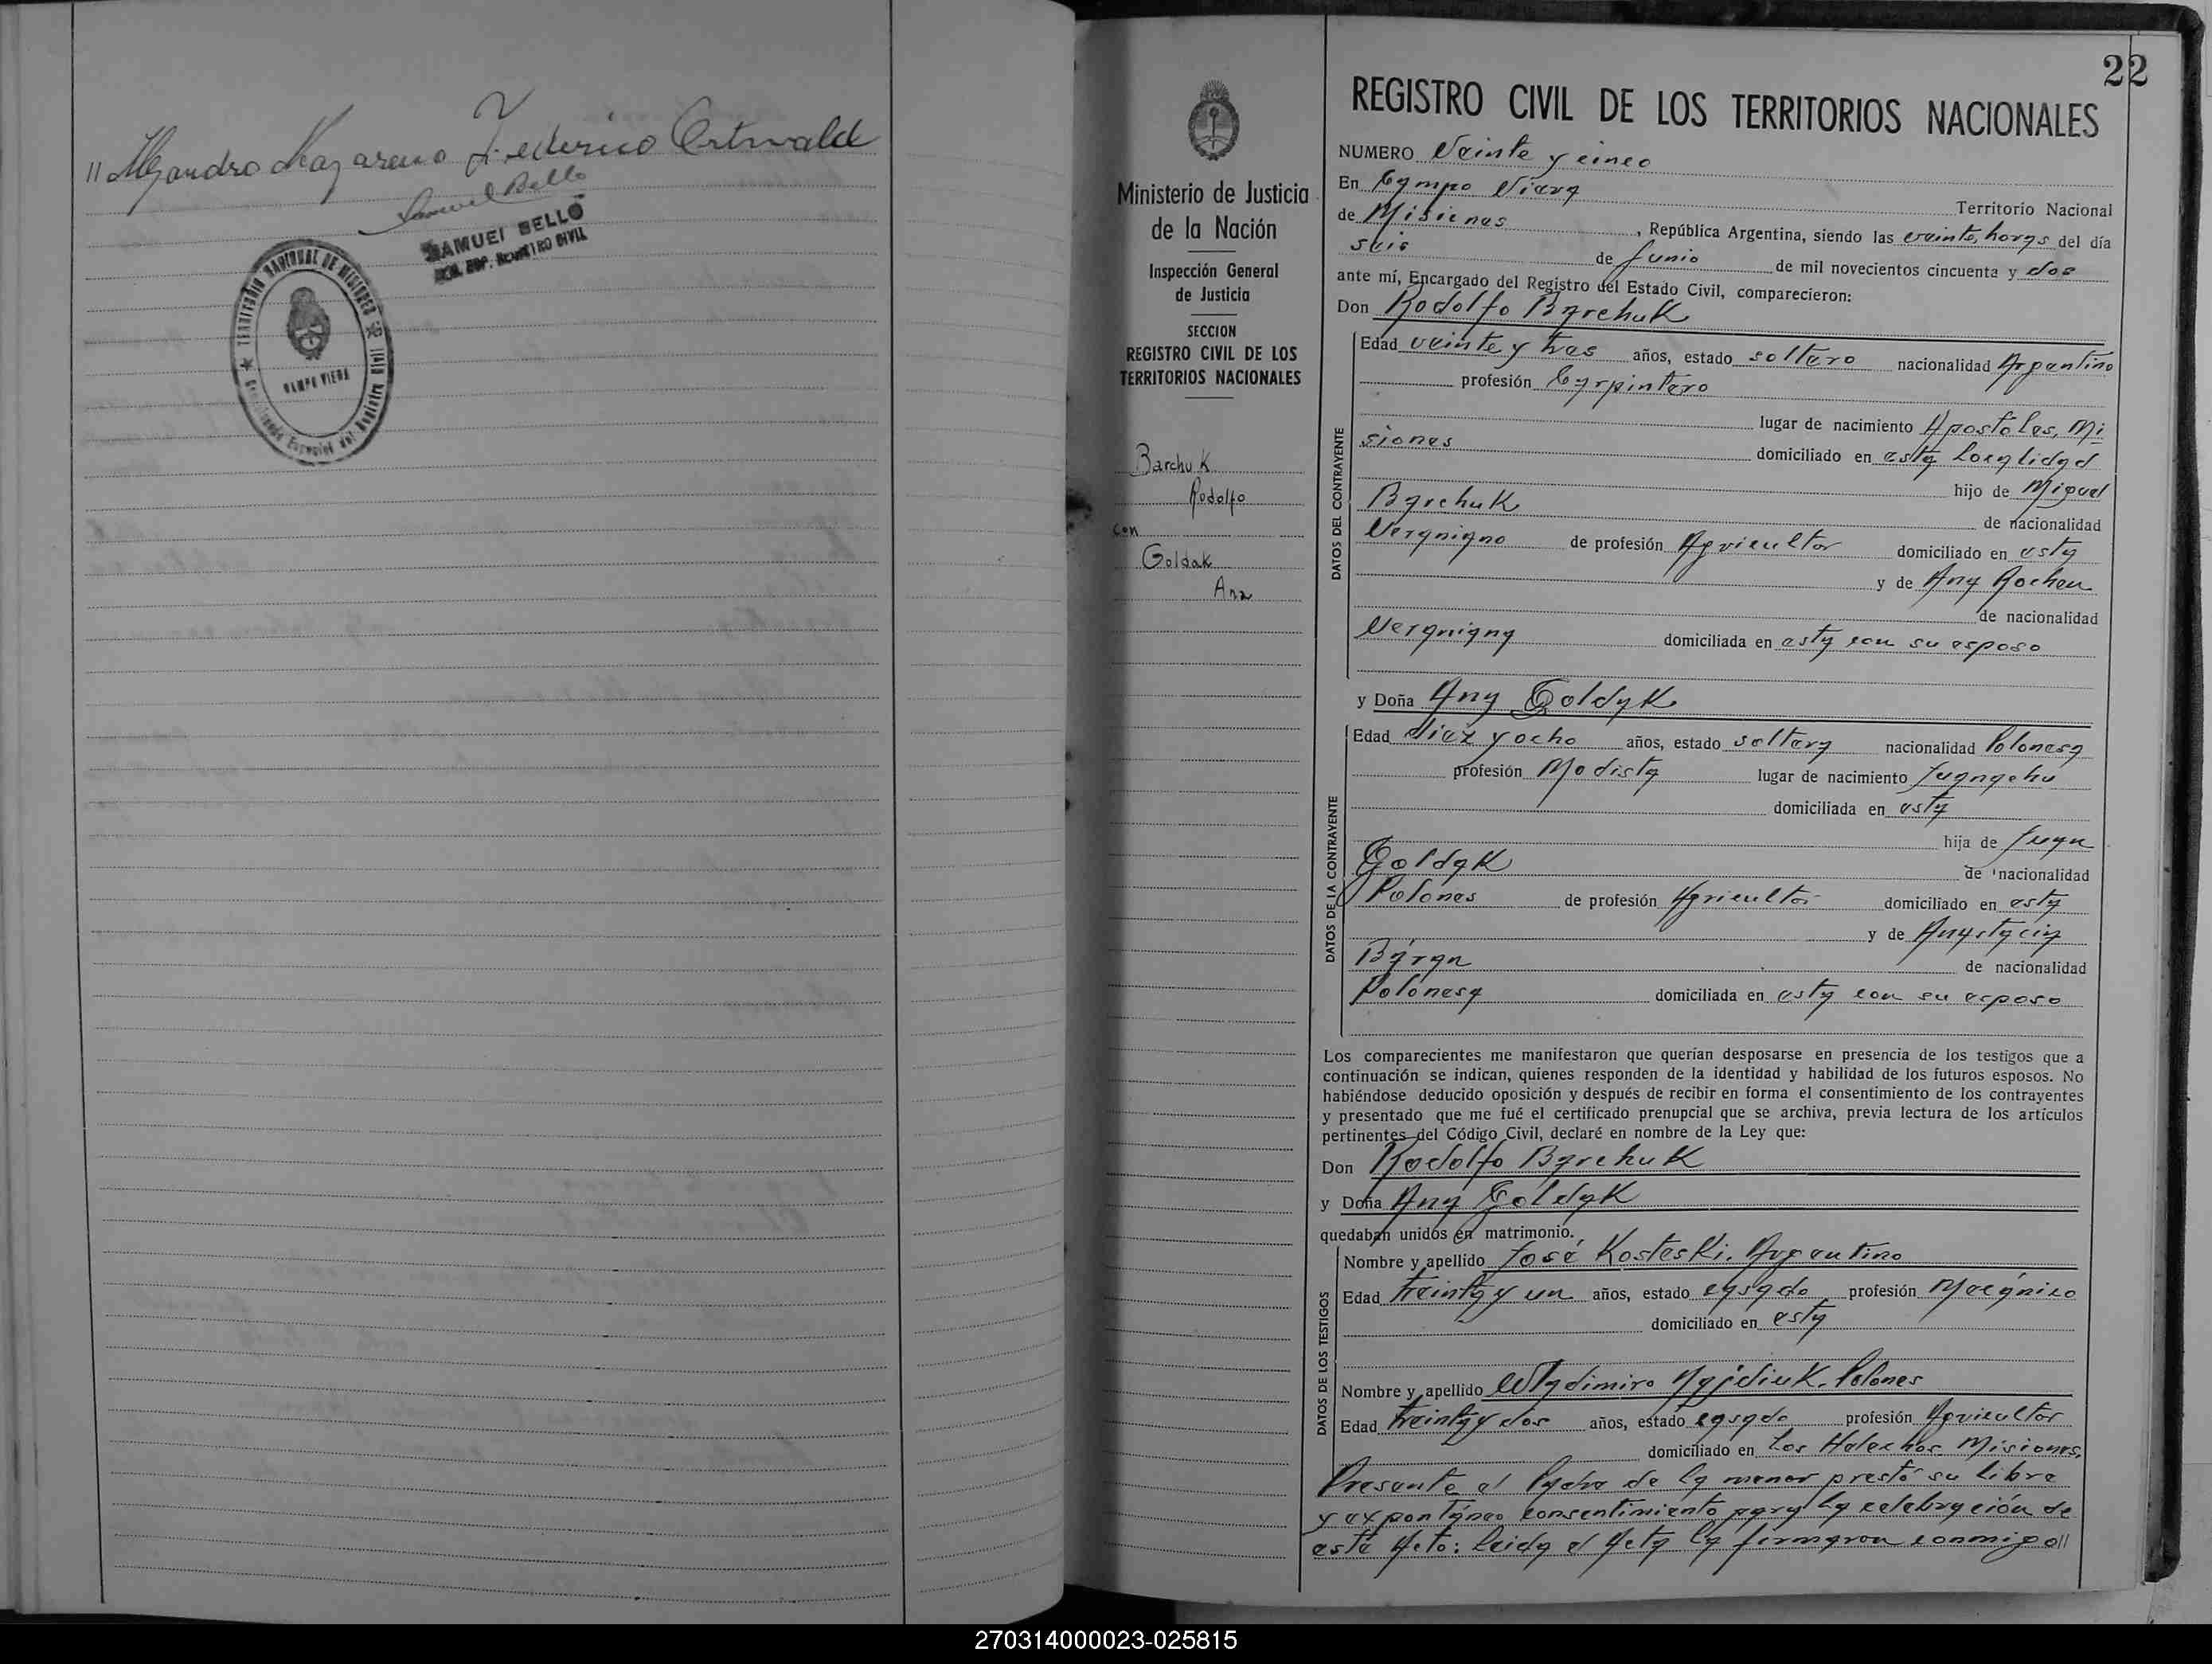 " Alejandro Nazareno Federico Ortwalde
Samuel Bello
SAMUEL BELLO
REGISTRO CIVIL
TERRITORIO NACIONAL DE MISIONES
CAMPO VIERA
22
Ministerio de Justicia
de la Nación
Inspección General
de Justicia
SECCION
REGISTRO CIVIL DE LOS
TERRITORIOS NACIONALES
Barchuk
Rodolfo
con
Goldak
Ana
REGISTRO CIVIL DE LOS TERRITORIOS NACIONALES
NUMERO Veinte y cinco
En Campo Viera Territorio Nacional
de Misiones, República Argentina, siendo las veinte horas del día
seis de Junio de mil novecientos cincuenta y dos
ante mí, Encargado del Registro del Estado Civil, comparecieron:
Don Rodolfo Barchuk
DATOS DEL CONTRAYENTE
Edad veinte y tres años, estado soltero nacionalidad Argentino
profesión Carpintero
lugar de nacimiento Apostoles, Mi
siones domiciliado en esta Localidad
hijo de Miguel
Barchuk de nacionalidad
Ucraniano de profesión Agricultor domiciliado en esta
y de Ana Rocheu
de nacionalidad
Ucraniana domiciliada en esta con su esposo
y Doña Ana Goldak
DATOS DE LA CONTRAYENTE
Edad diez y ocho años, estado soltera nacionalidad Polonesa
profesión Modista lugar de nacimiento
domiciliada en esta
hija de Juan
Goldak de nacionalidad
Polones de profesión Agricultor domiciliado en esta
y de Anastacia
Baran de nacionalidad
Polonesa domiciliada en esta con su esposo
Los comparecientes me manifestaron que querían desposarse en presencia de los testigos que a
continuación se indican, quienes responden de la identidad y habilidad de los futuros esposos. No
habiéndose deducido oposición y después de recibir en forma el consentimiento de los contrayentes
y presentado que me fué el certificado prenupcial que se archiva, previa lectura de los artículos
pertinentes del Código Civil, declaré en nombre de la Ley que:
Don Rodolfo Barchuk
y Doña Ana Goldak
quedaban unidos en matrimonio.
DATOS DE LOS TESTIGOS
Nombre y apellido José Kosteski. Argentino
Edad treinta y un años, estado casado profesión Mecánico
domiciliado en esta
Nombre y apellido Wladimiro Polones
Edad treinta y dos años, estado casado profesión Agricultor
domiciliado en Los Helechos Misiones.
Presente el Padre de la menor prestó su libre
y expontáneo consentimiento para la celebración de
este Acto: Leida el Acta la firmaron conmigo //
270314000023-025815